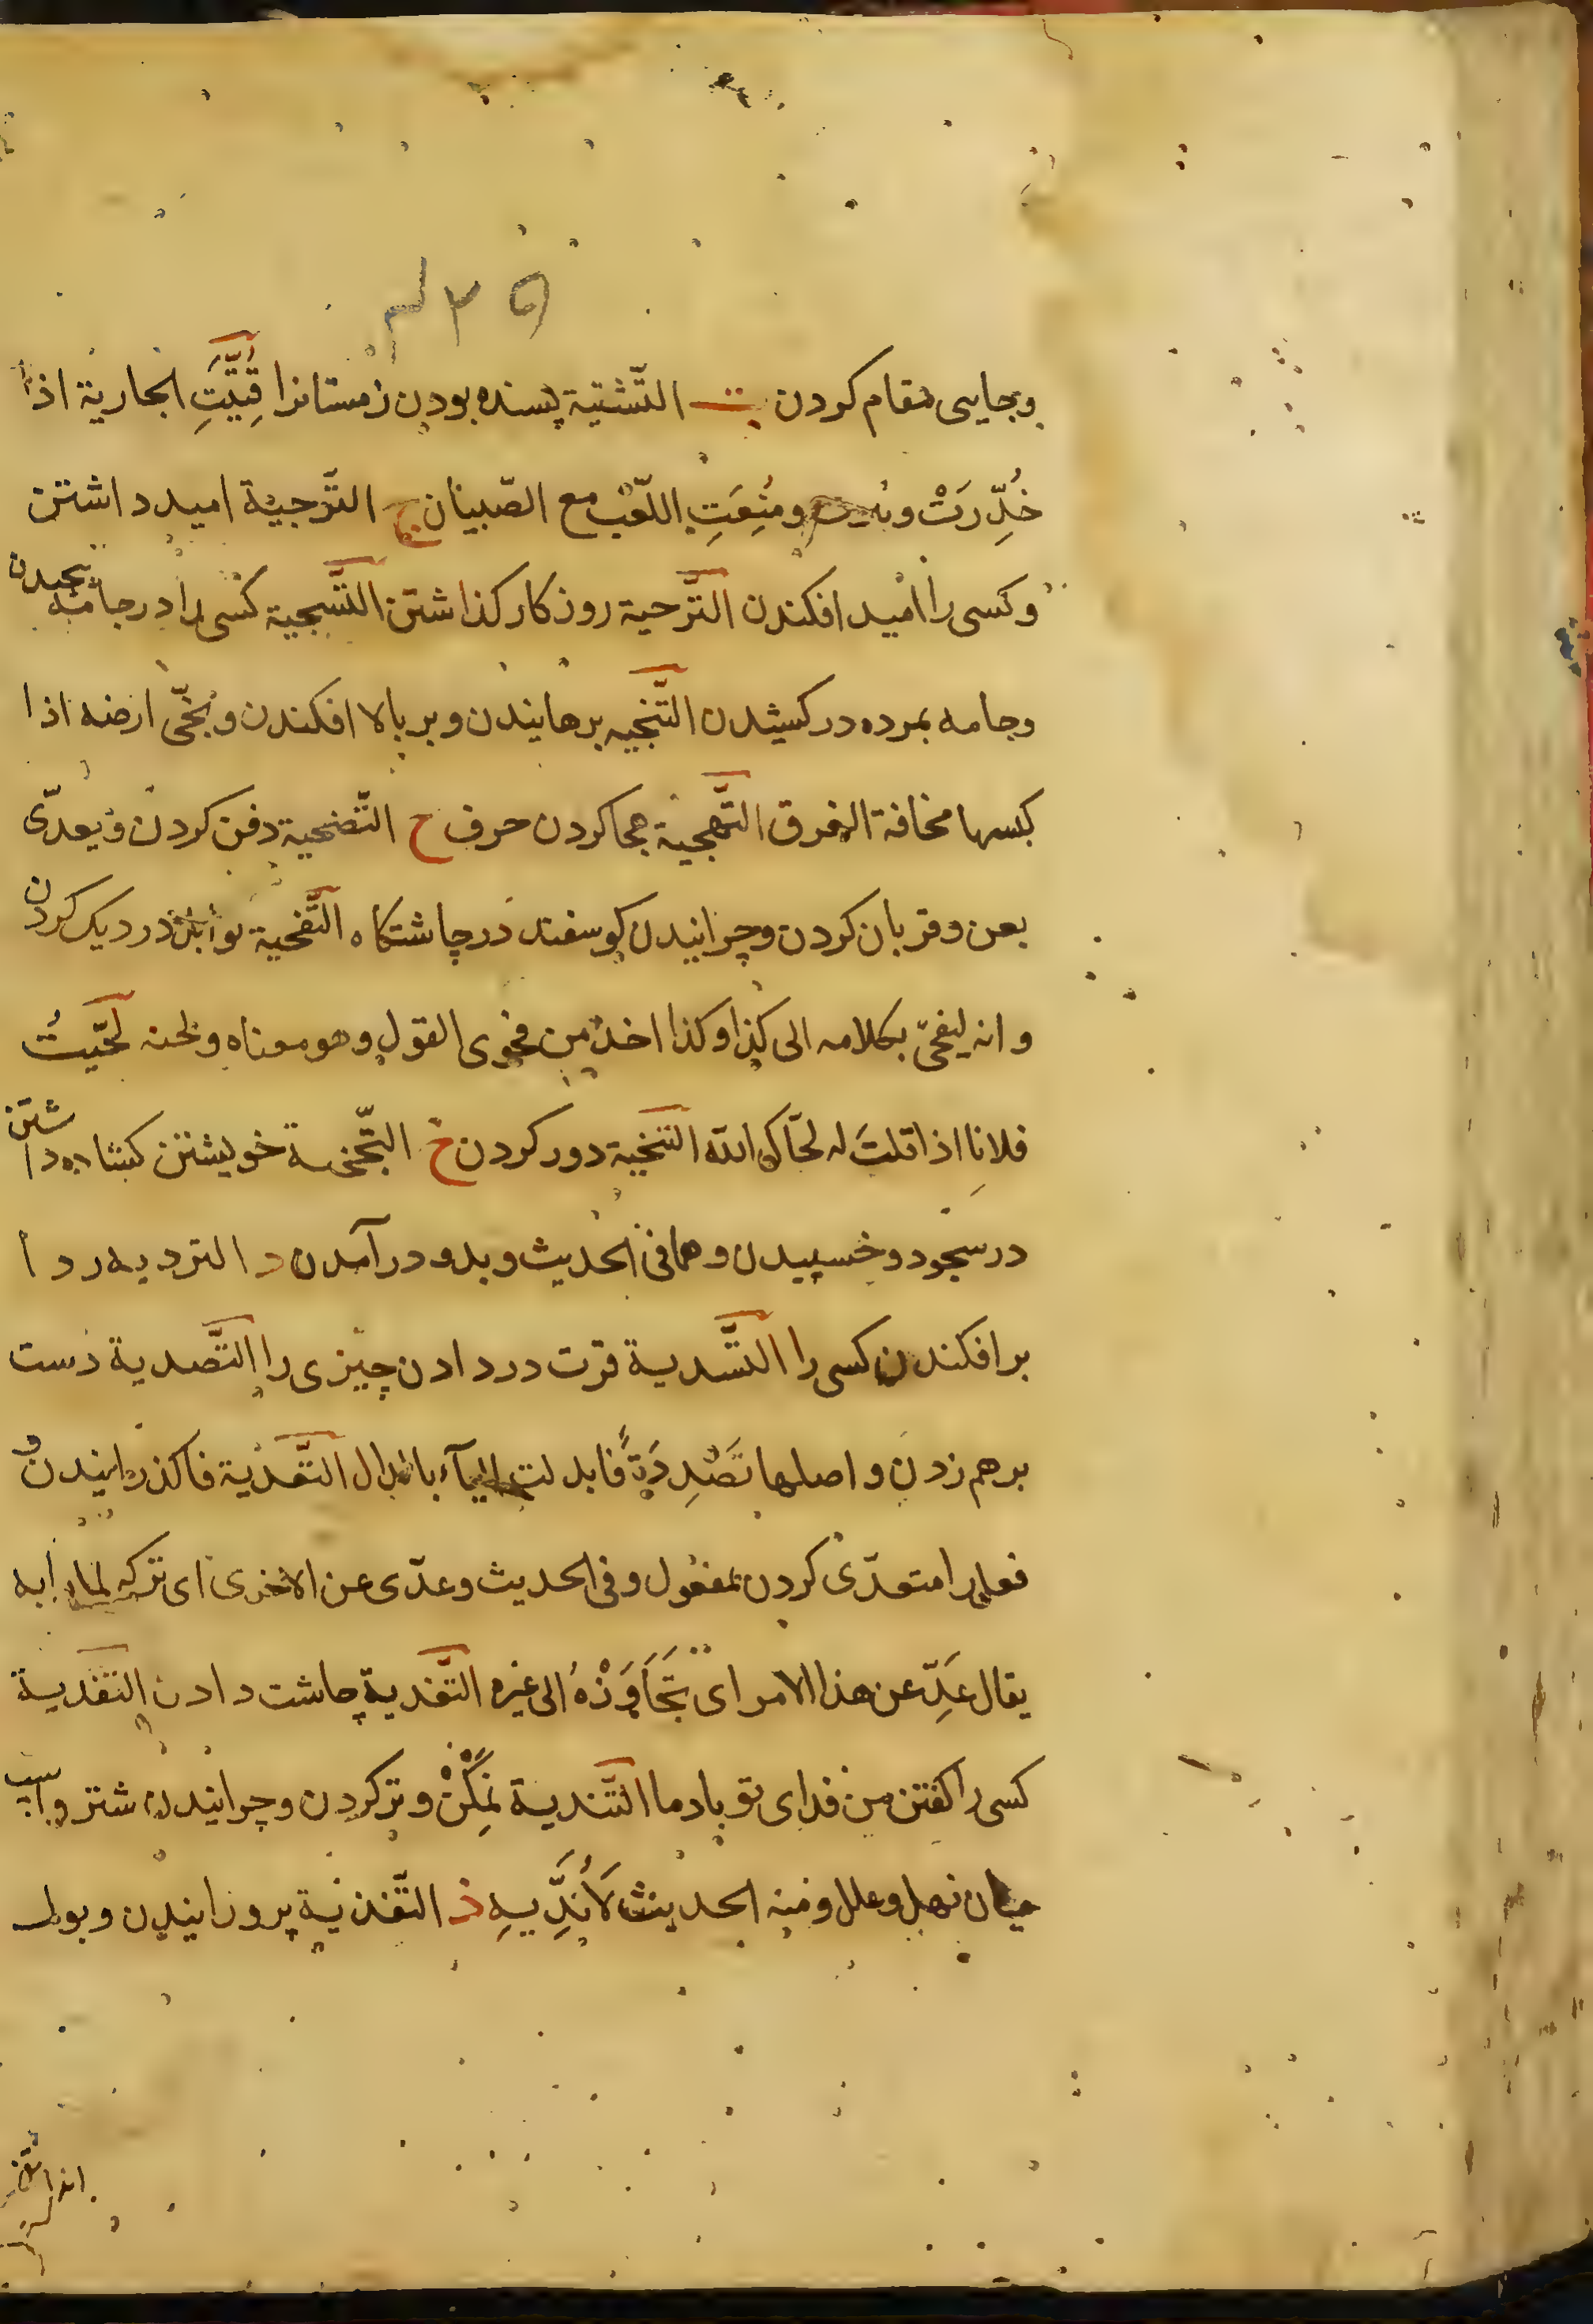 ۴۳۵
وبجایی مقام کردن ت التَّشتیة بسنده بودن زمستانرا فُتِّیَتِ الجاریة اذا
خُدِّرَتْ و ومُنِعَتِ اللّعْب مع الصّبیان ج التَّرجیة امید داشتن
وکسی را امید افکندن التَّزجیة روزکار کذاشتن التَّسجیة کسی را در جامه پیچیدن
وجامه بمرده در کشیدن التَّنجیه برهانیدن و بر بالا افکندن ونجّی ارضه اذا
کبسها مخافة الغرق التَّهجیة هجا کردن حرف ح التَّضحیة دفن کردن ویعدّی
بعن وقربان کردن وچرانیدن کوسفند در چاشتکاه التَّفحیة توابل در دیک کردن
وانه لیفحّی بکلامه الی کذا وکذا اخذ من فحوی القول وهو معناه ولحنه لَحَّیتُ
فلانا اذا قلتَ له لحّاک الله التنحیة دور کردن خ التَّجخیة خویشتن کشاده داشتن
در سجود وخسپیدن وهما فی الحدیث وبدو در آمدن د التردیه ردا
بر افکندن کسی را التَّسدیة فرت در دادن چیزی را التَّصدیة دست
برهم زدن واصلها تَصْدِدَةً فابدلت الیآء بالدال التَّعدیة فاکذرانیدن و
فعل را متعدّی کردن بمفعول وفی الحدیث وعدّی عن الاخری ای ترکه لما رابه
یقال عَدِّ عن هذا الامر ای تَجَاوَزْهُ الی غیره التَّغدیة چاشت دادن التفدیة
کسی را کفتن من فدای تو بادما التَّندیة نمکن وتر کردن وچرانیدن شتر واسب
میان نهل وعلل ومنه الحدیث لَأُنَدِّیهِ ذ التَّغذیة پرورانیدن وبول
انداختن